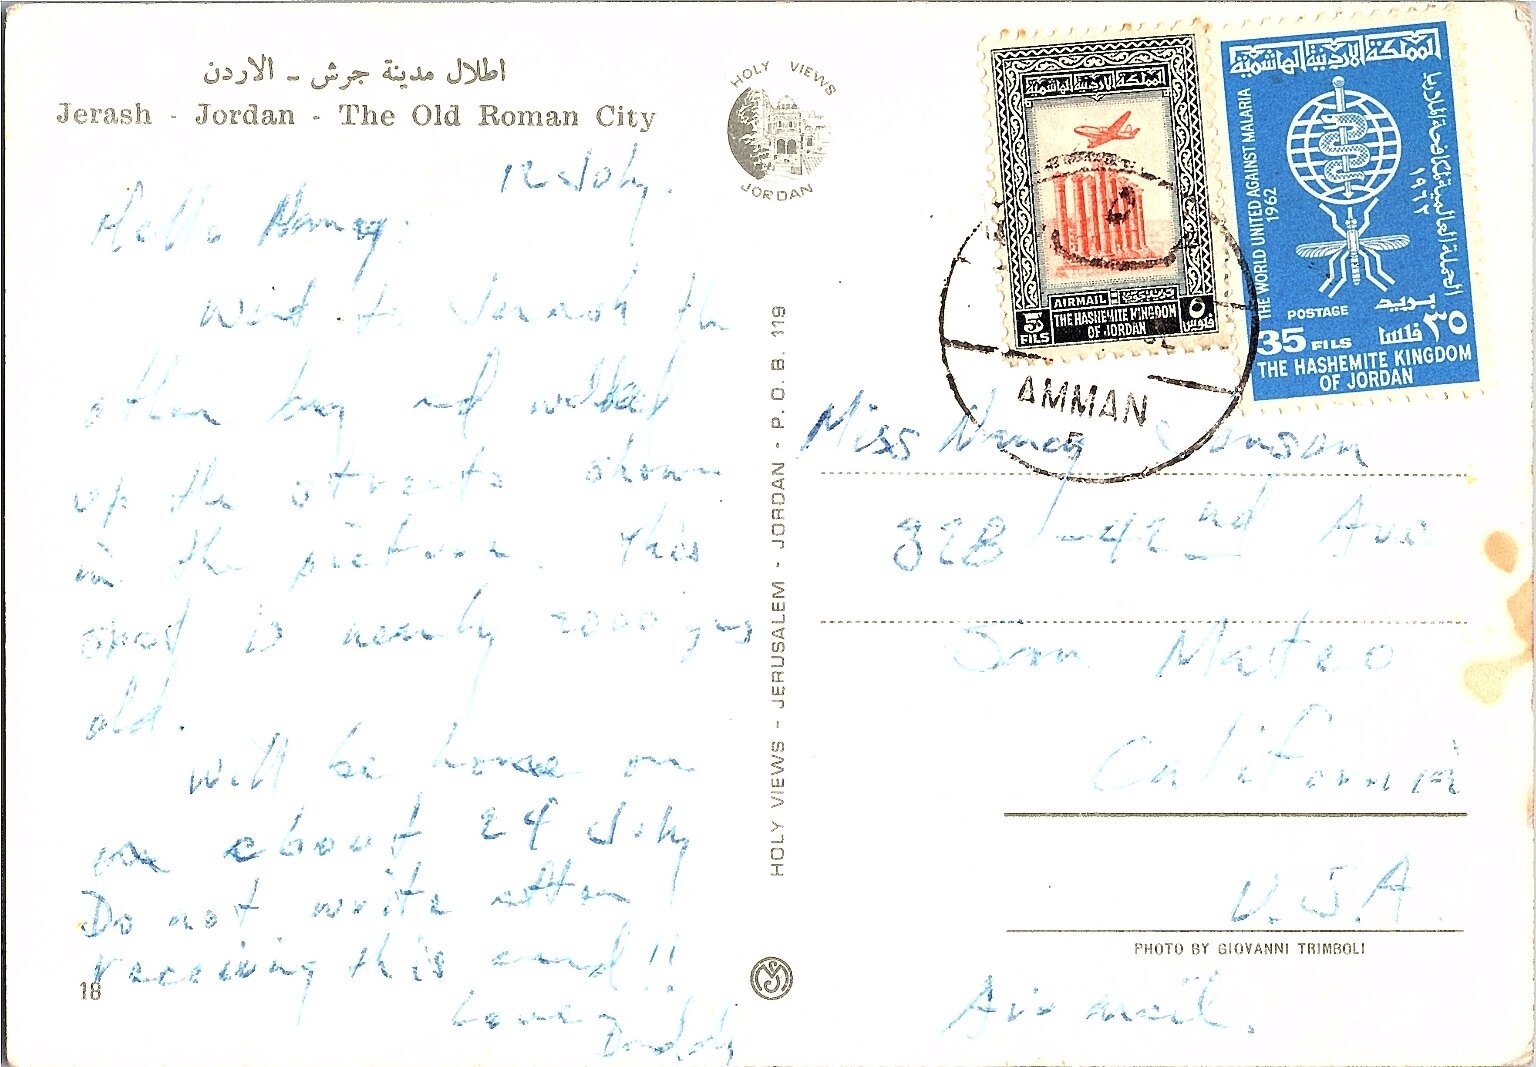 اطلال مدينة جرش - الاردن
Jerash - Jordan - The Old Roman City
HOLY VIEWS
JORDAN
12 July.
Hello Nancy.
Went to Jerash the
other day and walked
up the streets shown
in the picture. This
spot is nearly 2000 yrs
old.
Will be home on
or about 24 July
Do not write after
receiving this card!!
Love
Daddy
18
HOLY VIEWS - JERUSALEM - JORDAN - P. O. B. 119
المملكة الاردنية الهاشمية
AIRMAIL
5 FILS
THE HASHEMITE KINGDOM
OF JORDAN
٥ فلوس
المملكة الاردنية الهاشمية
THE WORLD UNITED AGAINST MALARIA
1962
الحملة العالمية لمكافحة الملاريا
١٩٦٢
POSTAGE بريد
35 FILS ٣٥ فلسا
THE HASHEMITE KINGDOM
OF JORDAN
AMMAN
5
Miss Nancy
328 - 42nd Ave
San Mateo
California
U.S.A.
PHOTO BY GIOVANNI TRIMBOLI
Air mail.